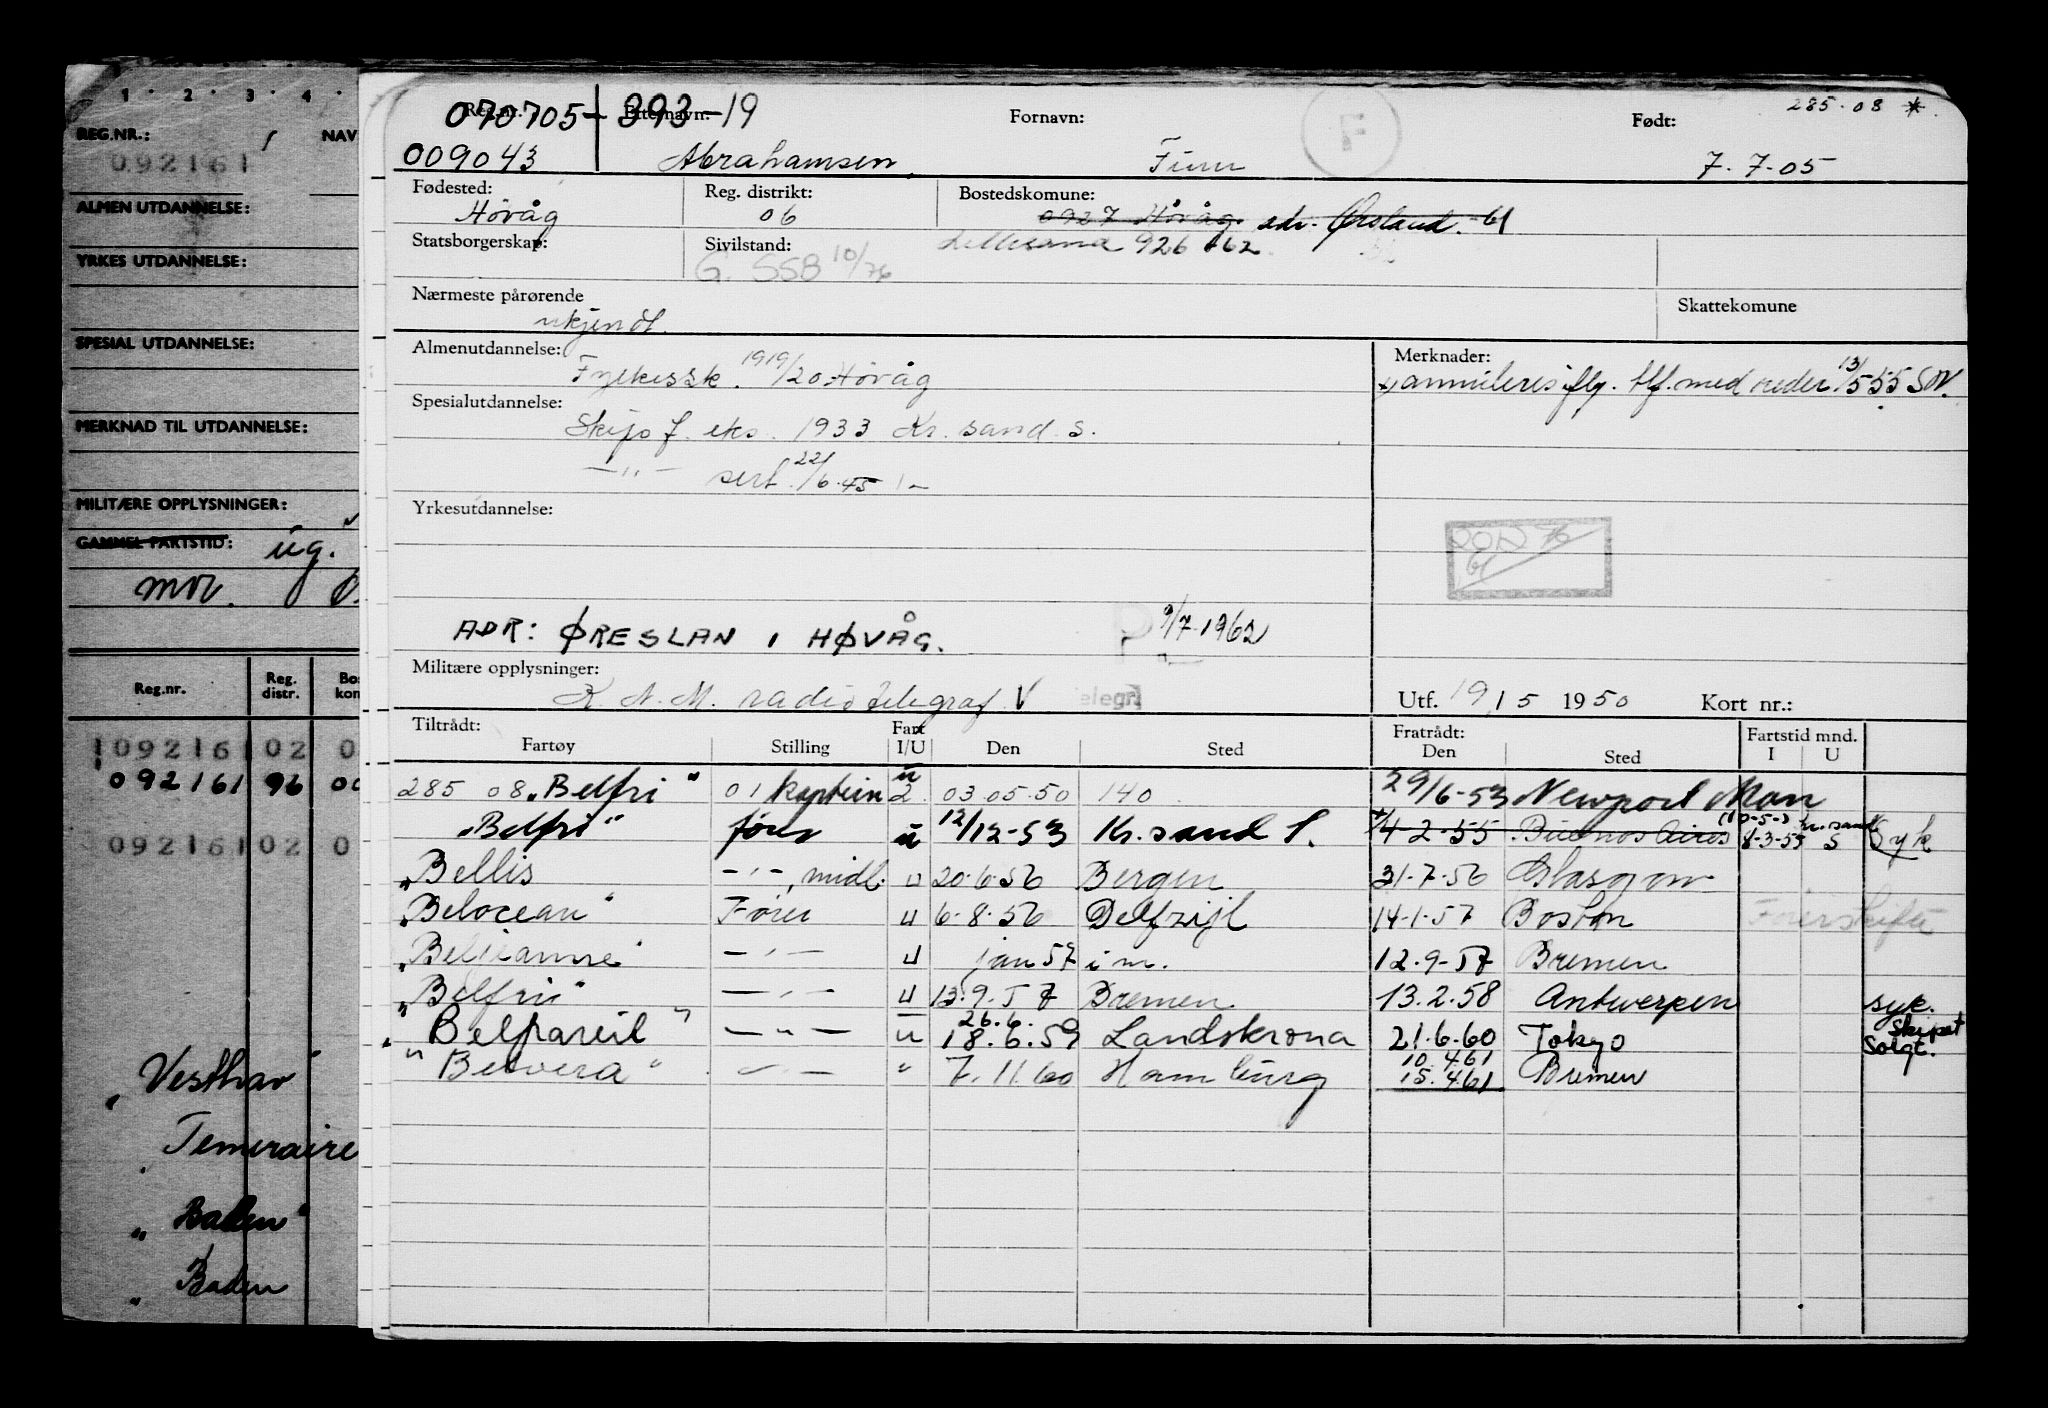 1 · 2 · 3 · 4 ·
REG.NR.: NAV
092161
ALMEN UTDANNELSE:
YRKES UTDANNELSE:
SPESIAL UTDANNELSE:
MERKNAD TIL UTDANNELSE:
MILITÆRE OPPLYSNINGER:
GAMMEL FARTSTID: ug.
mor.
Reg.nr. Reg. distr. Bo kon
092161 02 0
092161 96 00
092161 02 0
"Vesthav"
"Temeraire
"Baden"
"Baden
Reg.nr. Etternavn: Fornavn: Født:
070705-393-19 F 285·08 *
009043 Abrahamsen, Finn 7.7.05
Fødested: Reg. distrikt: Bostedskomune:
Høvåg 06 0927 Høvåg. adr. Øresland. 61
Statsborgerskap: Sivilstand: Lillesand 926 62
G. SSB 10/76
Nærmeste pårørende Skattekomune
ukjendt.
Almenutdannelse: Merknader:
Fylkessk. 1919/20 Høvåg
x) annuleres iflg. tlf. med reder 13/5 55 SW.
Spesialutdannelse:
Skips f. eks. 1933 Kr. sand. S.
—"— sert. 22/6.45
Yrkesutdannelse:
ADR: ØRESLAN I HØVÅG. P 9/7-1962
Militære opplysninger:
K.N.M. radiotelegraf V elegr.
Utf. 19/5 1950 Kort nr.:
Tiltrådt: Fart Fratrådt: Fartstid mnd.
Fartøy Stilling I/U Den Sted Den Sted I U
285 08 "Belfri" 01 kaptein u 2 03.05.50 140 29/6-53 Newport Mon
"Belfri" fører u 12/12-53 Kr.sand S. 4-2-55 Buenos Aires 8-3-55 Kr.sand S Syk
"Bellis —"—, midl. u 20.6.56 Bergen 31.7.56 Glasgow
"Belocean" Fører u 6.8.56 Delfzijl 14.1.57 Boston Førerskifte
"Beljeanne" —"— u jan 57 i m. 12.9.57 Bremen
"Belfri" —"— u 13.9.57 Bremen 13.2.58 Antwerpen syk.
"Belpareil" —"— u 26.6. 18.6.59 Landskrona 21.6.60 Tokyo Skipet Solgt.
"Belvera" —"— " 7.11.60 Hamburg 10.4.61 15.4.61 Bremen